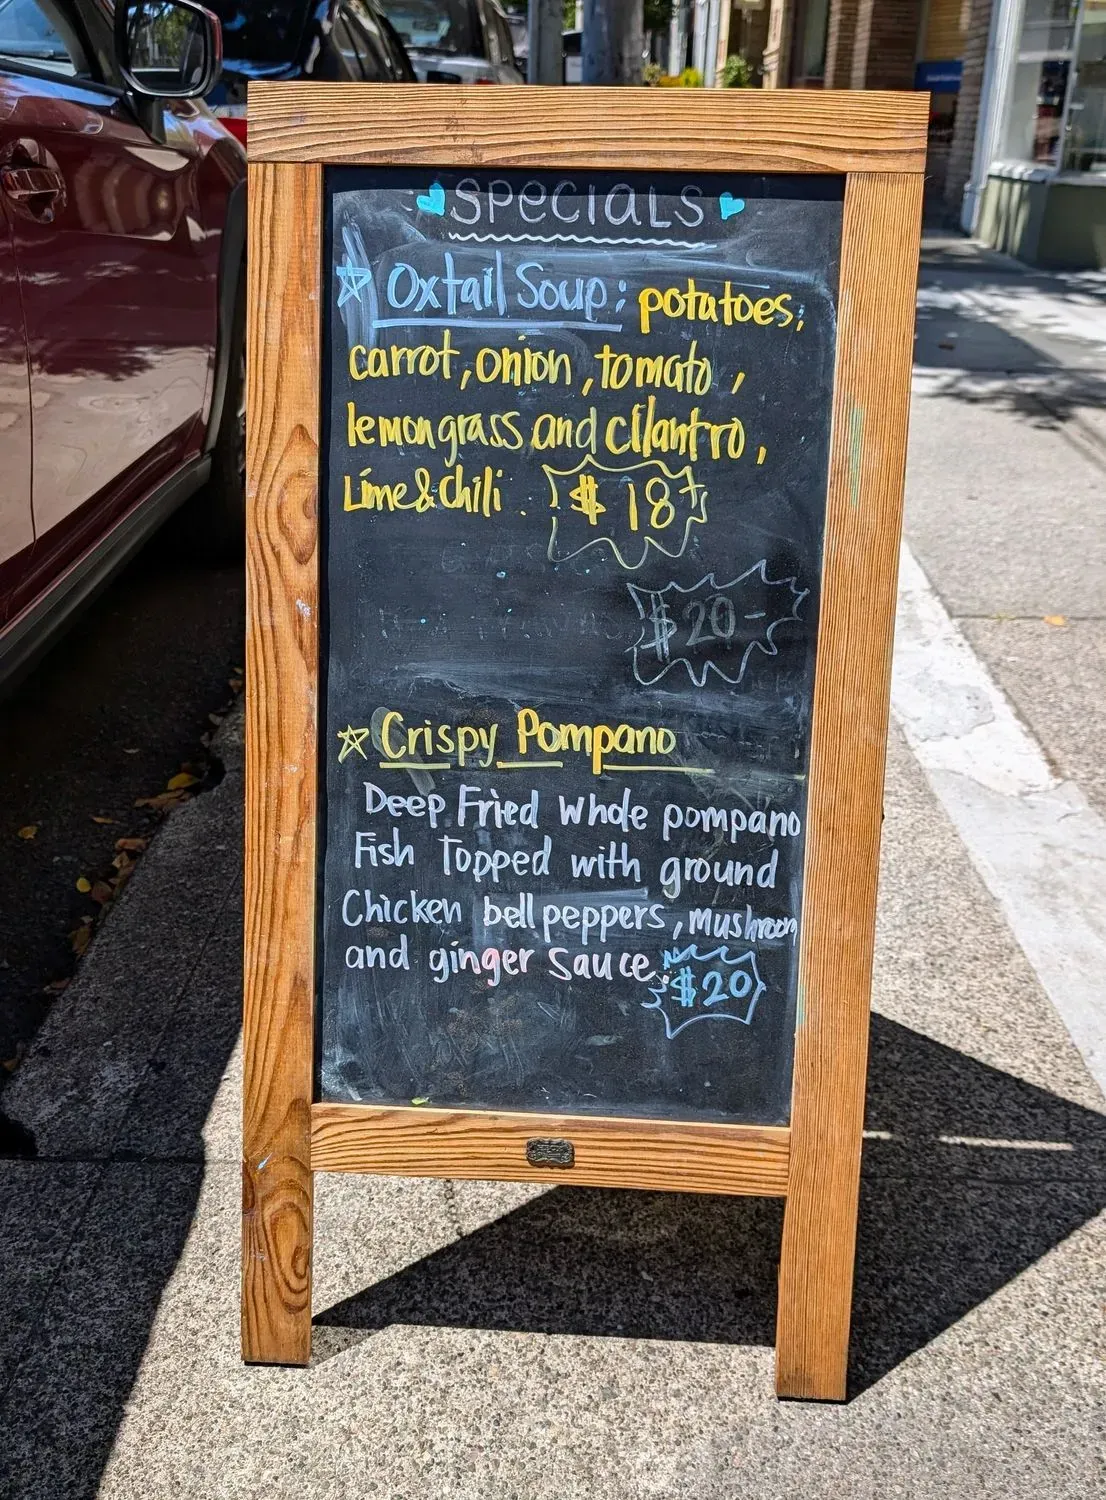 SPecIaLS
Oxtail Soup: potatoes,
carrot, onion, tomato,
lemongrass and cilantro,
Lime & Chili. $18+
$20-
Crispy Pompano
Deep Fried whole pompano
Fish Topped with ground
Chicken bell peppers, mushroom
and ginger sauce. $20